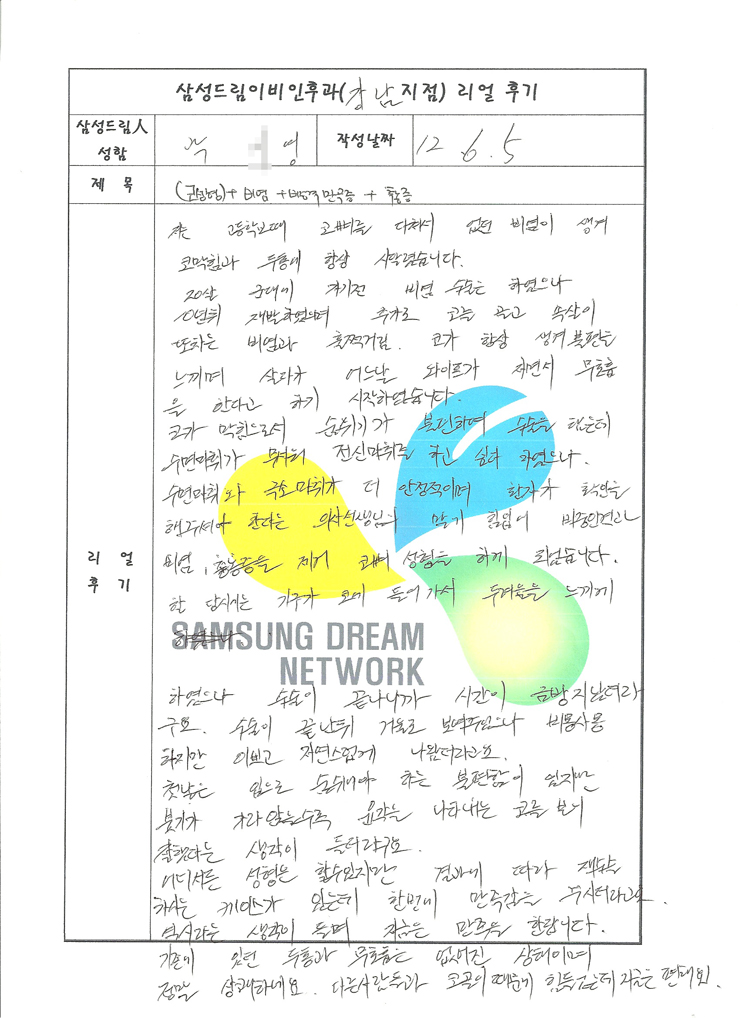 삼성드림이비인후과(강남지점) 리얼 후기
삼성드림人
성함
영
작성날짜
12. 6. 5
제 목
+ 비염 + 비중격만곡증 + 축농증
저는 고등학교때 코뼈를 다쳐서 없던 비염이 생겨
코막힘과 두통에 항상 시달렸습니다.
20살 군대에 가기전 비염 수술은 하였으나
10년뒤 재발하였으며 추가로 코를 골고 목살이
비염과 훌쩍거림. 코가 항상 생겨 불편을
느끼며 살다가 어느날 와이프가 자면서 무호흡
을 한다고 하기 시작하였습니다.
코가 막힘으로서 숨쉬기가 불편하며 수술을 하는데
수면마취가 무서워 전신마취를 하고 싶다 하였으나.
수면마취와 국소마취가 더 안정적이며 환자가 확인을
해주셔야 한다는 의사선생님의 말에 힘입어 비중만곡과
비염, 축농증을 제거 코뼈 성형을 하게 되었습니다.
할 당시에는 기구가 코에 들어가서 두려움을 느끼게
SAMSUNG DREAM
NETWORK
리 얼
후 기
하였으나 수술이 끝나니까 시간이 금방 지났더라
구요. 수술이 끝난뒤 거울로 보여주셨으나
하지만 이쁘고 자연스럽게 나왔더라고요.
첫날은 입으로 숨쉬어야 하는 불편함이 있지만
붓기가 가라앉을수록 윤곽을 나타내는 코를 보니
잘했다는 생각이 들더라구요.
어디서든 성형은 할수있지만 결과에 따라 재수술
하시는 케이스가 있는데 한번에 만족감을 주시더라고요
역시라는 생각이 들며 지금은 만족을 합니다.
기존에 있던 두통과 무호흡은 없어진 상태이며
정말 상쾌하네요. 다른사람들과 코골이 때문에 힘들었는데 지금은 편해요.